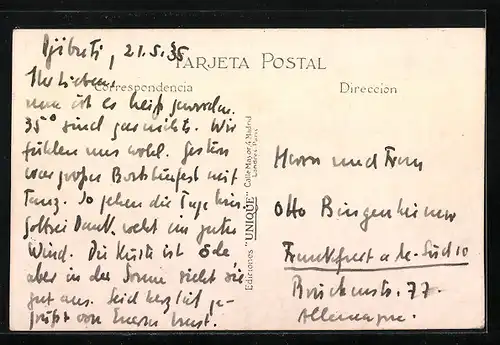 Djibuti, 21.5.35
TARJETA POSTAL
Correspondencia
Direccion
Ihr Lieben,
nun ist es heiß geworden.
35° sind gar nichts. Wir
fühlen uns wohl. Gestern
war großes Bordfest mit
Tanz. So gehen die Tage hin
Gottsei Dank, weht ein guter
Wind. Die Küste ist öde,
aber in der Sonne sieht sie
gut aus. Seid herzlich ge-
grüßt von Eurem
Ediciones "UNIQUE" Calle Mayor, 4 Madrid
Londres-Paris
Herrn und Frau
Otto Bingenheimer
Frankfurt a. M.-Süd 10
Brückenstr. 77.
Allemagne.